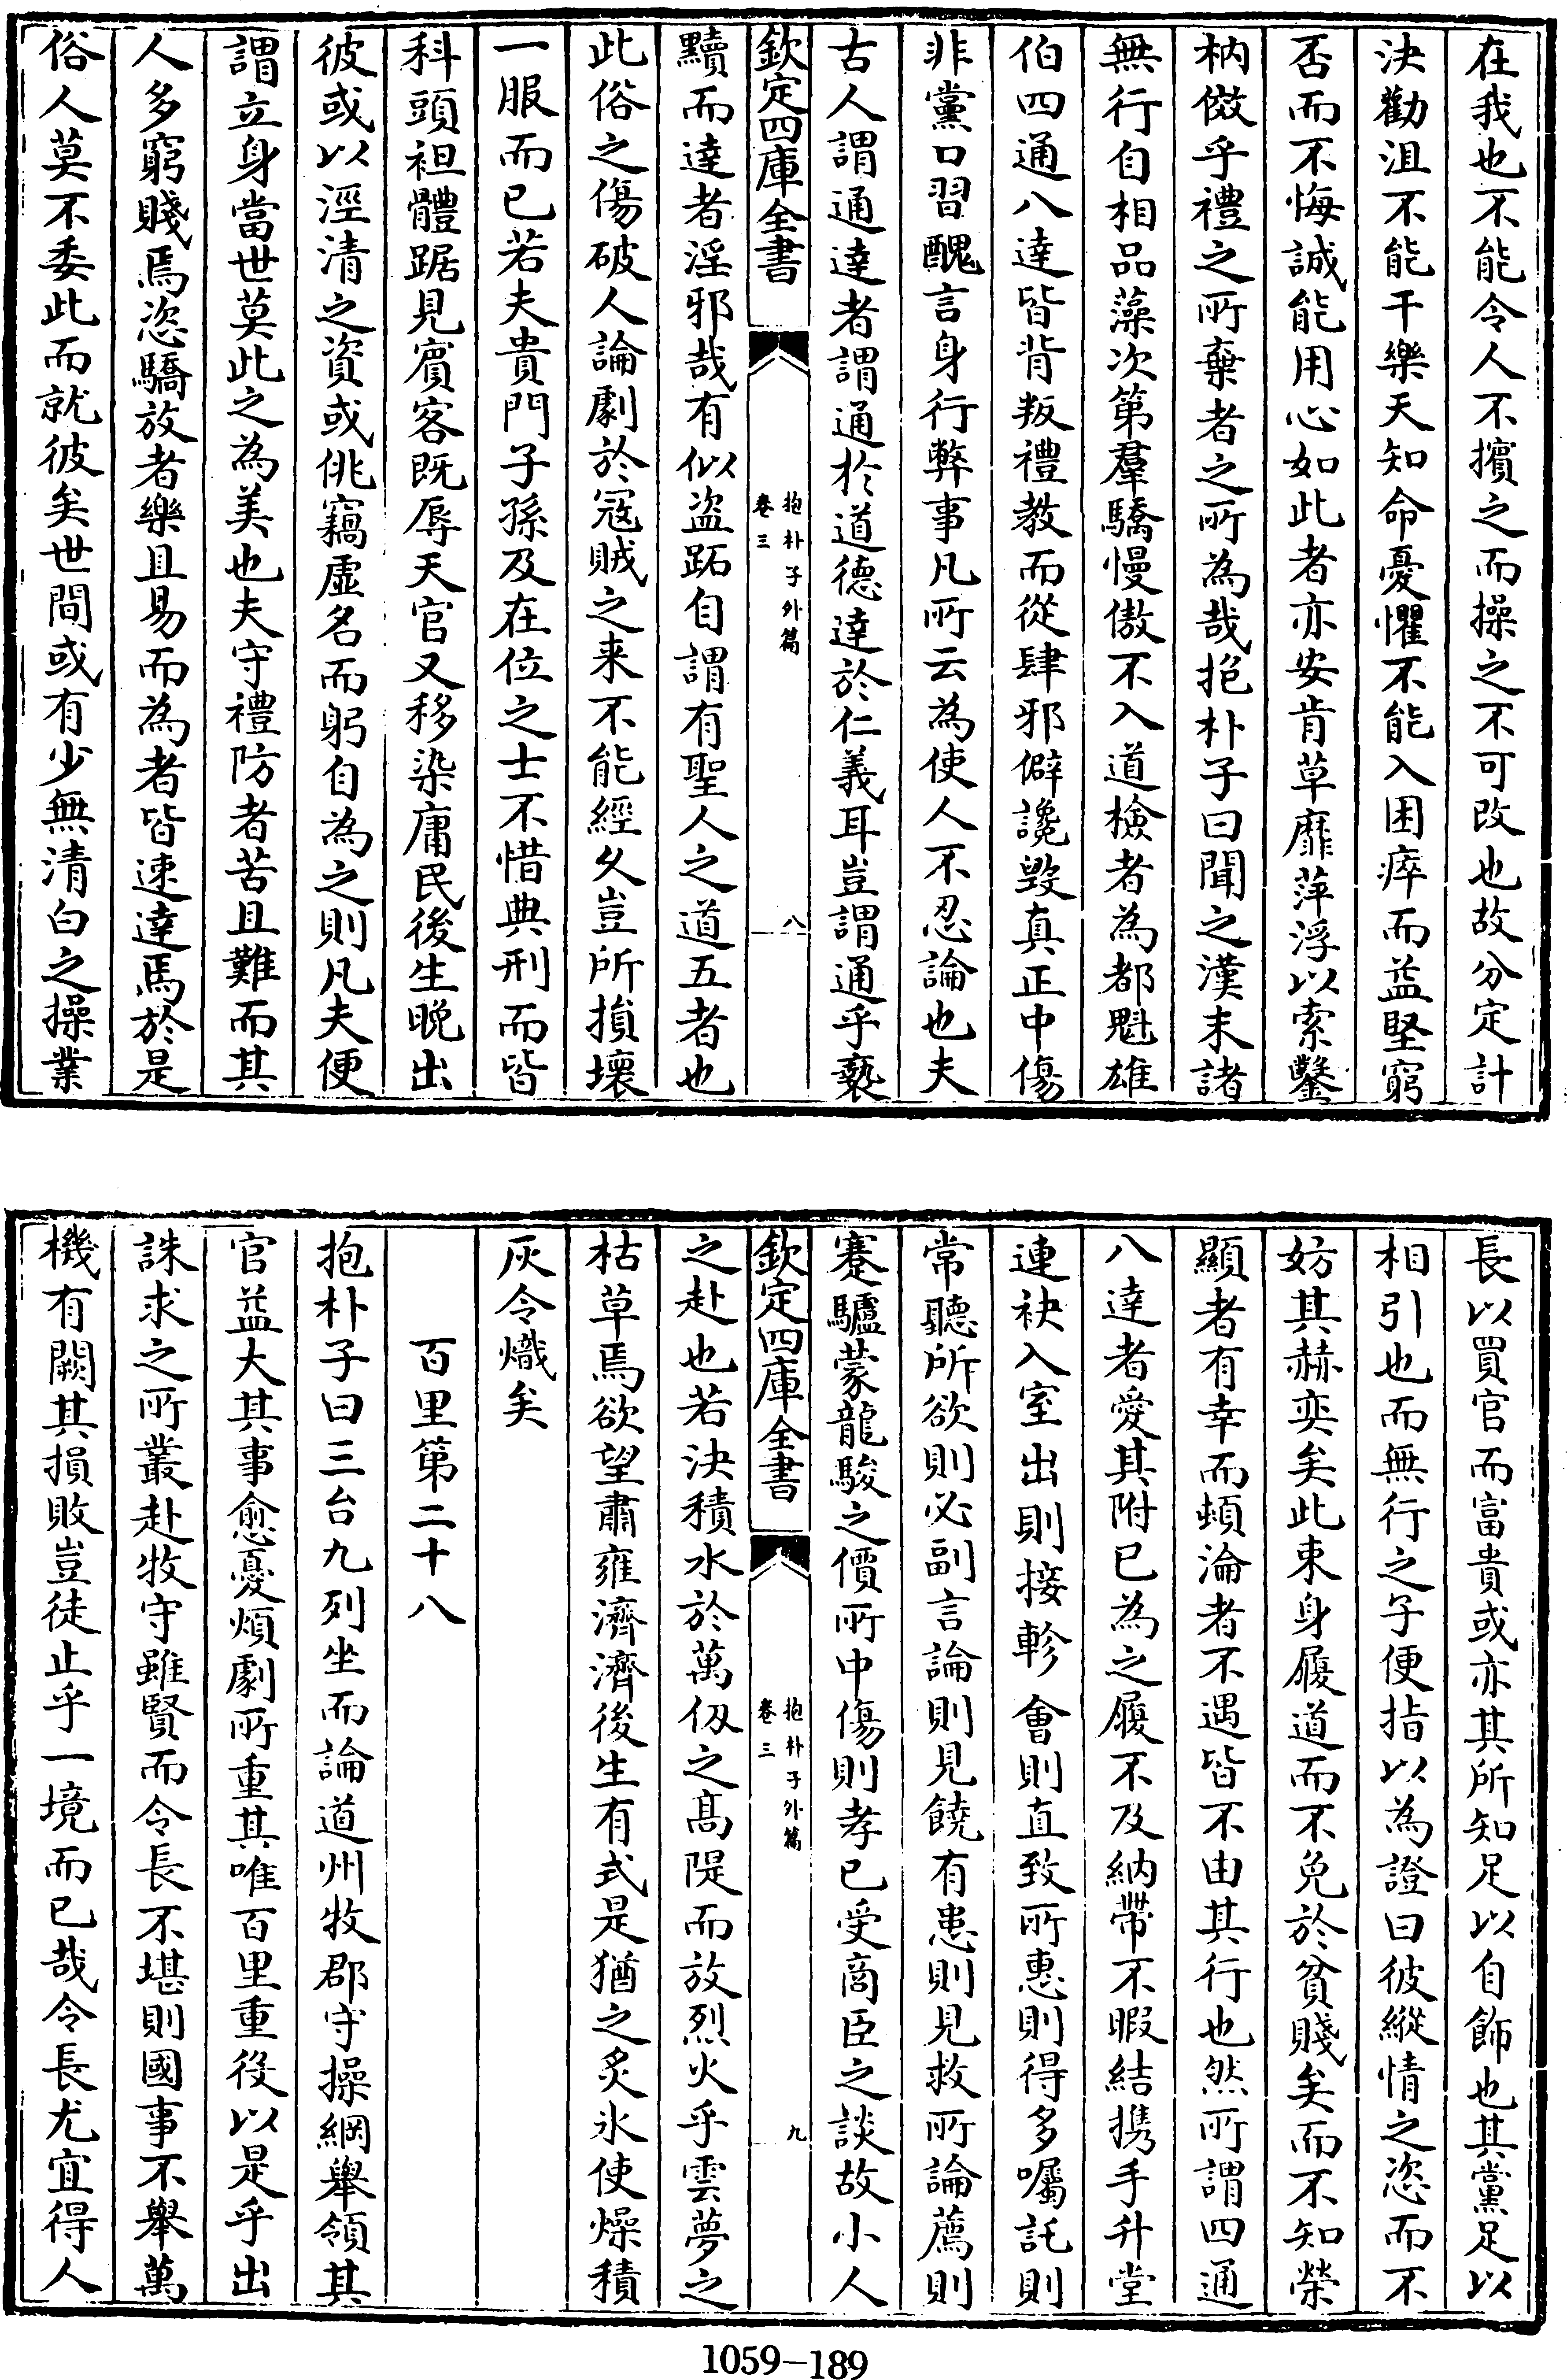 在我也不能令人不擯之而操之不可改也故分定計
決勸沮不能干樂天知命憂懼不能入困瘁而益堅窮
否而不悔誠能用心如此者亦安肯草靡萍浮以索鑿
枘傚乎禮之所棄者之所為哉抱朴子曰聞之漢末諸
無行自相品藻次第羣驕慢傲不入道檢者為都魁雄
伯四通八達皆背叛禮教而從肆邪僻讒毀真正中傷
非黨口習醜言身行弊事凡所云為使人不忍論也夫
古人謂通達者謂通於道德達於仁義耳豈謂通乎褻
欽定四庫全書
抱朴子外篇
卷三
八
黷而達者淫邪哉有似盜跖自謂有聖人之道五者也
此俗之傷破人論劇於冦賊之来不能經久豈所損壞
一服而已若夫貴門子孫及在位之士不惜典刑而皆
科頭袒體踞見賓客既辱天官又移染庸民後生晚出
彼或以涇清之資或佻竊虛名而躬自為之則凡夫便
謂立身當世莫此之為美也夫守禮防者苦且難而其
人多窮賤焉恣驕放者樂且易而為者皆速達焉於是
俗人莫不委此而就彼矣世間或有少無清白之操業
長以買官而富貴或亦其所知足以自飾也其黨足以
相引也而無行之子便指以為證曰彼縱情之恣而不
妨其赫奕矣此束身履道而不免於貧賤矣而不知榮
顯者有幸而頓淪者不遇皆不由其行也然所謂四通
八達者愛其附已為之履不及納帶不暇結携手升堂
連袂入室出則接軫會則直致所惠則得多囑託則
常聽所欲則必副言論則見饒有患則見救所論薦則
蹇驢蒙龍駿之價所中傷則孝已受商臣之談故小人
欽定四庫全書
抱朴子外篇
卷三
九
之赴也若決積水於萬仭之髙隄而放烈火乎雲夢之
枯草焉欲望肅雍濟濟後生有式是猶之炙氷使燥積
灰令熾矣
百里第二十八
抱朴子曰三台九列坐而論道州牧郡守操綱舉領其
官益大其事愈憂煩劇所重其唯百里重役以是乎出
誅求之所叢赴牧守雖賢而令長不堪則國事不舉萬
機有闕其損敗豈徒止乎一境而已哉令長尤宜得人
1059-189